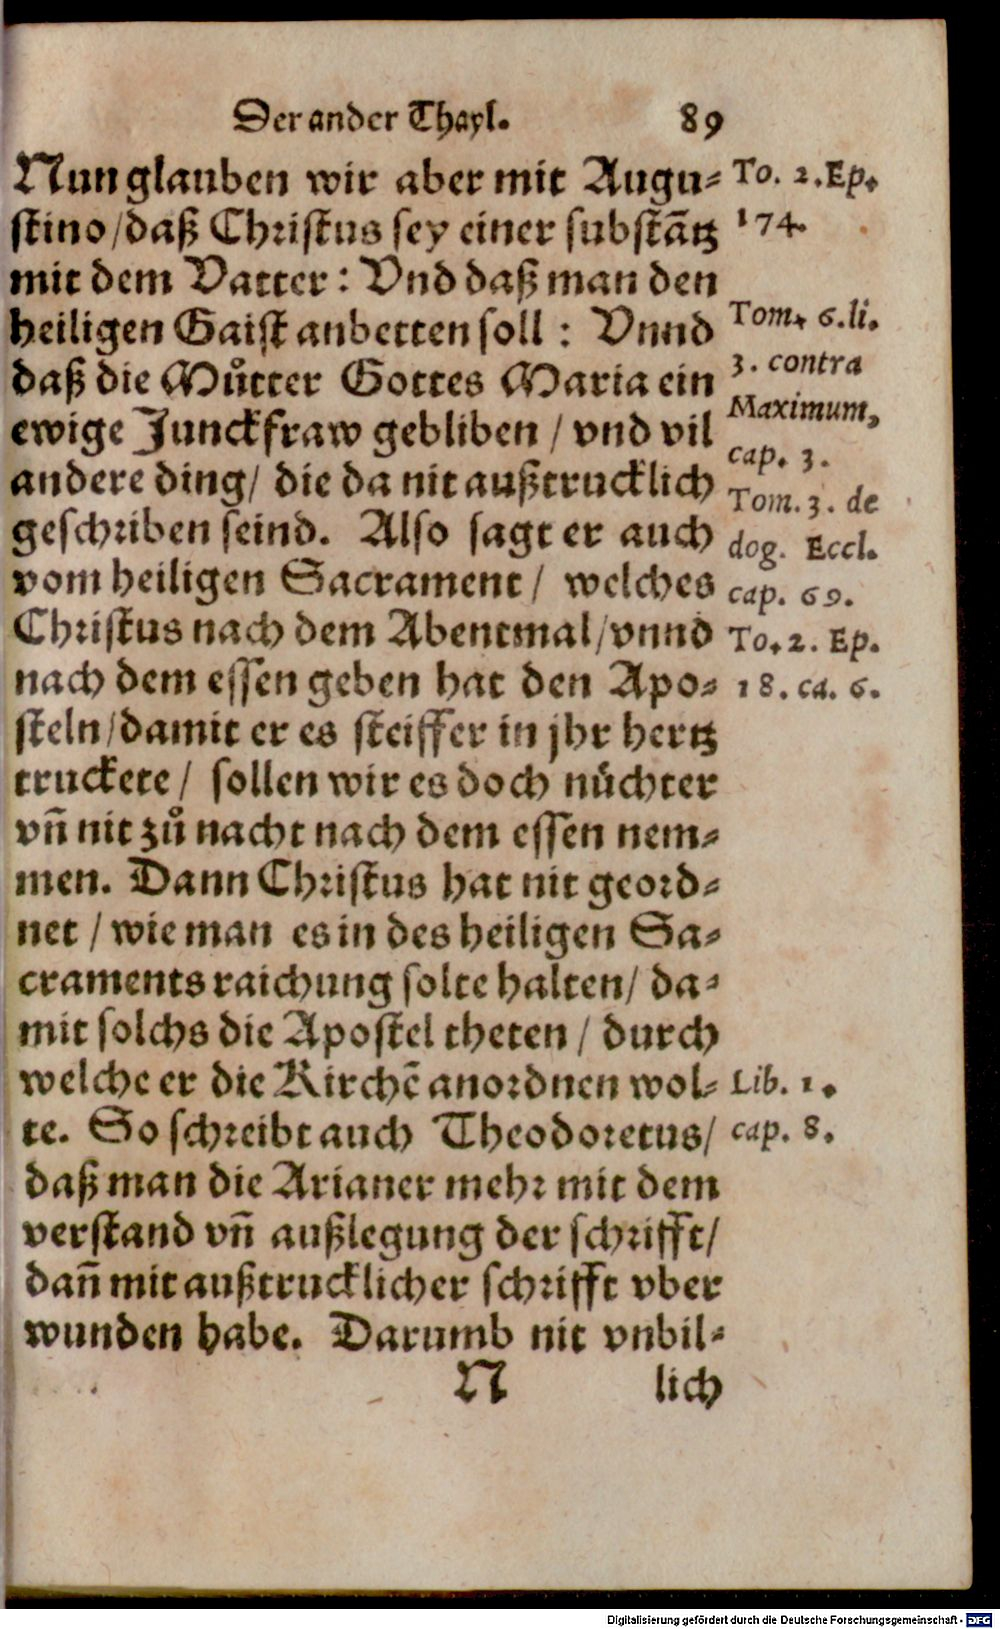 Der ander Thayl. 89
Nun glauben wir aber mit Augu-
stino/daß Christus sey einer substãtz
mit dem Vatter: Vnd daß man den
heiligen Gaist anbetten soll: Vnnd
daß die Můtter Gottes Maria ein
ewige Junckfraw gebliben / vnd vil
andere ding/ die da nit außtrucklich
geschriben seind. Also sagt er auch
vom heiligen Sacrament/ welches
Christus nach dem Abentmal/vnnd
nach dem essen geben hat den Apo-
steln/damit er es steiffer in jhr hertz
truckete/ sollen wir es doch nüchter
vñ nit zů nacht nach dem essen nem-
men. Dann Christus hat nit geord-
net / wie man es in des heiligen Sa-
craments raichung solte halten/ da-
mit solchs die Apostel theten / durch
welche er die Kirchẽ anordnen wol-
te. So schreibt auch Theodoretus/
daß man die Arianer mehr mit dem
verstand vñ außlegung der schrifft/
dañ mit außtrucklicher schrifft vber
wunden habe. Darumb nit vnbil-
N lich
To. 2. Ep.
174.
Tom. 6. li.
3. contra
Maximum,
cap. 3.
Tom. 3. de
dog. Eccl.
cap. 69.
To. 2. Ep.
18. ca. 6.
Lib. 1.
cap. 8.
Digitalisierung gefördert durch die Deutsche Forschungsgemeinschaft - DFG